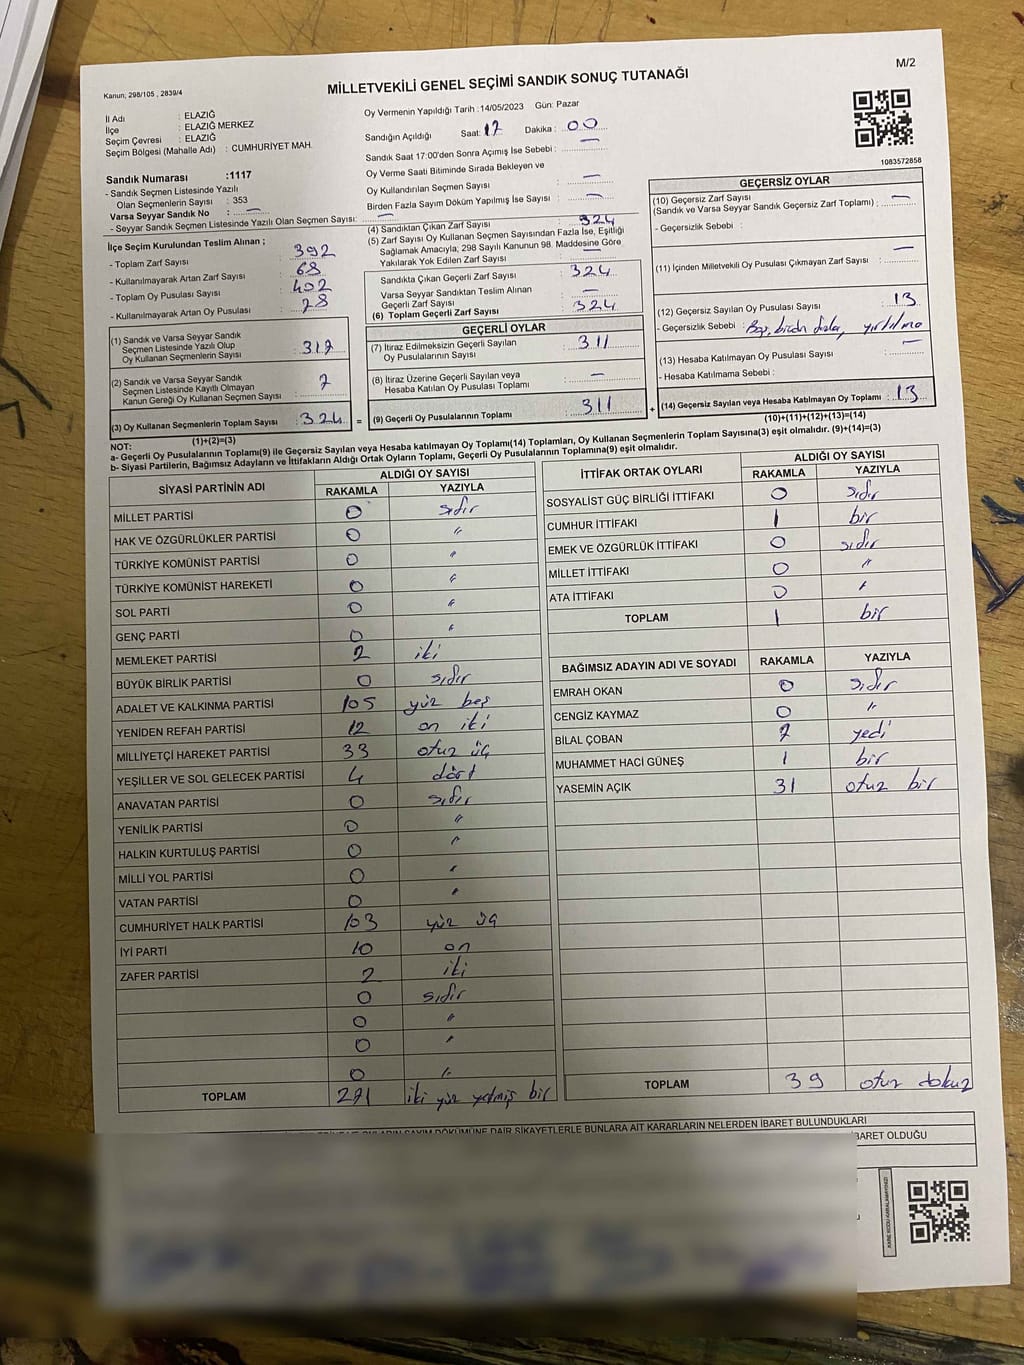 M/2
MİLLETVEKİLİ GENEL SEÇİMİ SANDIK SONUÇ TUTANAĞI
Kanun; 298/105 , 2839/4
İl Adı : ELAZIĞ
İlçe : ELAZIĞ MERKEZ
Seçim Çevresi : ELAZIĞ
Seçim Bölgesi (Mahalle Adı) : CUMHURİYET MAH.
Sandık Numarası :1117
- Sandık Seçmen Listesinde Yazılı
Olan Seçmenlerin Sayısı : 353
Varsa Seyyar Sandık No : —
- Seyyar Sandık Seçmen Listesinde Yazılı Olan Seçmen Sayısı: —
Oy Vermenin Yapıldığı Tarih :14/05/2023 Gün: Pazar
Sandığın Açıldığı Saat: 17 Dakika : 00
Sandık Saat 17:00'den Sonra Açımış İse Sebebi : —
Oy Verme Saati Bitiminde Sırada Bekleyen ve
Oy Kullandırılan Seçmen Sayısı : —
Birden Fazla Sayım Döküm Yapılmış İse Sayısı : —
1083572858
İlçe Seçim Kurulundan Teslim Alınan ;
- Toplam Zarf Sayısı : 392
- Kullanılmayarak Artan Zarf Sayısı : 68
- Toplam Oy Pusulası Sayısı : 402
- Kullanılmayarak Artan Oy Pusulası : 78
(1) Sandık ve Varsa Seyyar Sandık
Seçmen Listesinde Yazılı Olup
Oy Kullanan Seçmenlerin Sayısı : 317
(2) Sandık ve Varsa Seyyar Sandık
Seçmen Listesinde Kayıtlı Olmayan
Kanun Gereği Oy Kullanan Seçmen Sayısı : 7
(3) Oy Kullanan Seçmenlerin Toplam Sayısı : 324
(1)+(2)=(3)
(4) Sandıktan Çıkan Zarf Sayısı : 324
(5) Zarf Sayısı Oy Kullanan Seçmen Sayısından Fazla İse, Eşitliği
Sağlamak Amacıyla; 298 Sayılı Kanunun 98. Maddesine Göre
Yakılarak Yok Edilen Zarf Sayısı : —
Sandıkta Çıkan Geçerli Zarf Sayısı : 324
Varsa Seyyar Sandıktan Teslim Alınan
Geçerli Zarf Sayısı : —
(6) Toplam Geçerli Zarf Sayısı : 324
GEÇERLİ OYLAR
(7) İtiraz Edilmeksizin Geçerli Sayılan
Oy Pusulalarının Sayısı : 311
(8) İtiraz Üzerine Geçerli Sayılan veya
Hesaba Katılan Oy Pusulası Toplamı : —
= (9) Geçerli Oy Pusulalarının Toplamı : 311
GEÇERSİZ OYLAR
(10) Geçersiz Zarf Sayısı
(Sandık ve Varsa Seyyar Sandık Geçersiz Zarf Toplamı) : —
- Geçersizlik Sebebi : —
(11) İçinden Milletvekili Oy Pusulası Çıkmayan Zarf Sayısı :
(12) Geçersiz Sayılan Oy Pusulası Sayısı : 13
- Geçersizlik Sebebi : Boş, birden fazla, yırtılma
(13) Hesaba Katılmayan Oy Pusulası Sayısı : —
- Hesaba Katılmama Sebebi :
+ (14) Geçersiz Sayılan veya Hesaba Katılmayan Oy Toplamı : 13
(10)+(11)+(12)+(13)=(14)
NOT:
a- Geçerli Oy Pusulalarının Toplamı(9) ile Geçersiz Sayılan veya Hesaba katılmayan Oy Toplamı(14) Toplamları, Oy Kullanan Seçmenlerin Toplam Sayısına(3) eşit olmalıdır. (9)+(14)=(3)
b- Siyasi Partilerin, Bağımsız Adayların ve İttifakların Aldığı Ortak Oyların Toplamı, Geçerli Oy Pusulalarının Toplamına(9) eşit olmalıdır.
SİYASİ PARTİNİN ADI ALDIĞI OY SAYISI
RAKAMLA YAZIYLA
MİLLET PARTİSİ 0 sıfır
HAK VE ÖZGÜRLÜKLER PARTİSİ 0 "
TÜRKİYE KOMÜNİST PARTİSİ 0 "
TÜRKİYE KOMÜNİST HAREKETİ 0 "
SOL PARTİ 0 "
GENÇ PARTİ 0 "
MEMLEKET PARTİSİ 2 iki
BÜYÜK BİRLİK PARTİSİ 0 sıfır
ADALET VE KALKINMA PARTİSİ 105 yüz beş
YENİDEN REFAH PARTİSİ 12 on iki
MİLLİYETÇİ HAREKET PARTİSİ 33 otuz üç
YEŞİLLER VE SOL GELECEK PARTİSİ 4 dört
ANAVATAN PARTİSİ 0 sıfır
YENİLİK PARTİSİ 0 "
HALKIN KURTULUŞ PARTİSİ 0 "
MİLLİ YOL PARTİSİ 0 "
VATAN PARTİSİ 0 "
CUMHURİYET HALK PARTİSİ 103 yüz üç
İYİ PARTİ 10 on
ZAFER PARTİSİ 2 iki
0 sıfır
0 "
0 "
0 "
TOPLAM 271 iki yüz yetmiş bir
İTTİFAK ORTAK OYLARI ALDIĞI OY SAYISI
RAKAMLA YAZIYLA
SOSYALİST GÜÇ BİRLİĞİ İTTİFAKI 0 sıfır
CUMHUR İTTİFAKI 1 bir
EMEK VE ÖZGÜRLÜK İTTİFAKI 0 sıfır
MİLLET İTTİFAKI 0 "
ATA İTTİFAKI 0 "
TOPLAM 1 bir
BAĞIMSIZ ADAYIN ADI VE SOYADI RAKAMLA YAZIYLA
EMRAH OKAN 0 sıfır
CENGİZ KAYMAZ 0 "
BİLAL ÇOBAN 7 yedi
MUHAMMET HACİ GÜNEŞ 1 bir
YASEMİN AÇIK 31 otuz bir
TOPLAM 39 otuz dokuz
OYLARIN SAYIM DÖKÜMÜNE DAİR ŞİKAYETLERLE BUNLARA AİT KARARLARIN NELERDEN İBARET BULUNDUKLARI
İBARET OLDUĞU